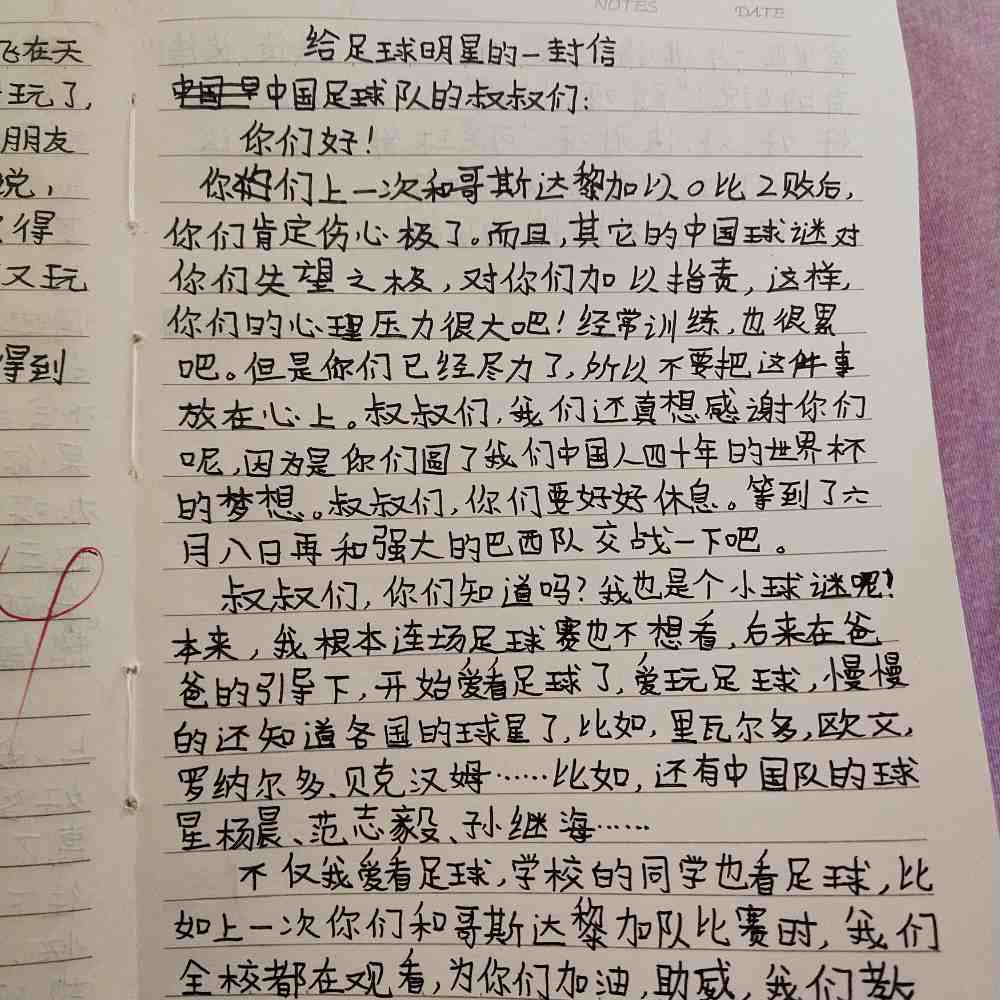 NOTES
DATE
飞在天
玩了，
朋友
说，
得
又玩
得到
给足球明星的一封信
中国足球队的叔叔们：
你们好！
你们上一次和哥斯达黎加以0比2败后，
你们肯定伤心极了。而且，其它的中国球谜对
你们失望之极，对你们加以指责，这样，
你们的心理压力很大吧！经常训练，也很累
吧。但是你们已经尽力了，所以不要把这件事
放在心上。叔叔们，我们还真想感谢你们
呢，因为是你们圆了我们中国人四十年的世界杯
的梦想。叔叔们，你们要好好休息。等到了六
月八日再和强大的巴西队交战一下吧。
叔叔们，你们知道吗？我也是个小球谜呢！
本来，我根本连场足球赛也不想看，后来在爸
爸的引导下，开始爱看足球了，爱玩足球，慢慢
的还知道各国的球星了，比如，里瓦尔多，欧文，
罗纳尔多、贝克汉姆……比如，还有中国队的球
星杨晨、范志毅、孙继海……
不仅我爱看足球，学校的同学也看足球，比
如上一次你们和哥斯达黎加队比赛时，我们
全校都在观看，为你们加油，助威，我们教